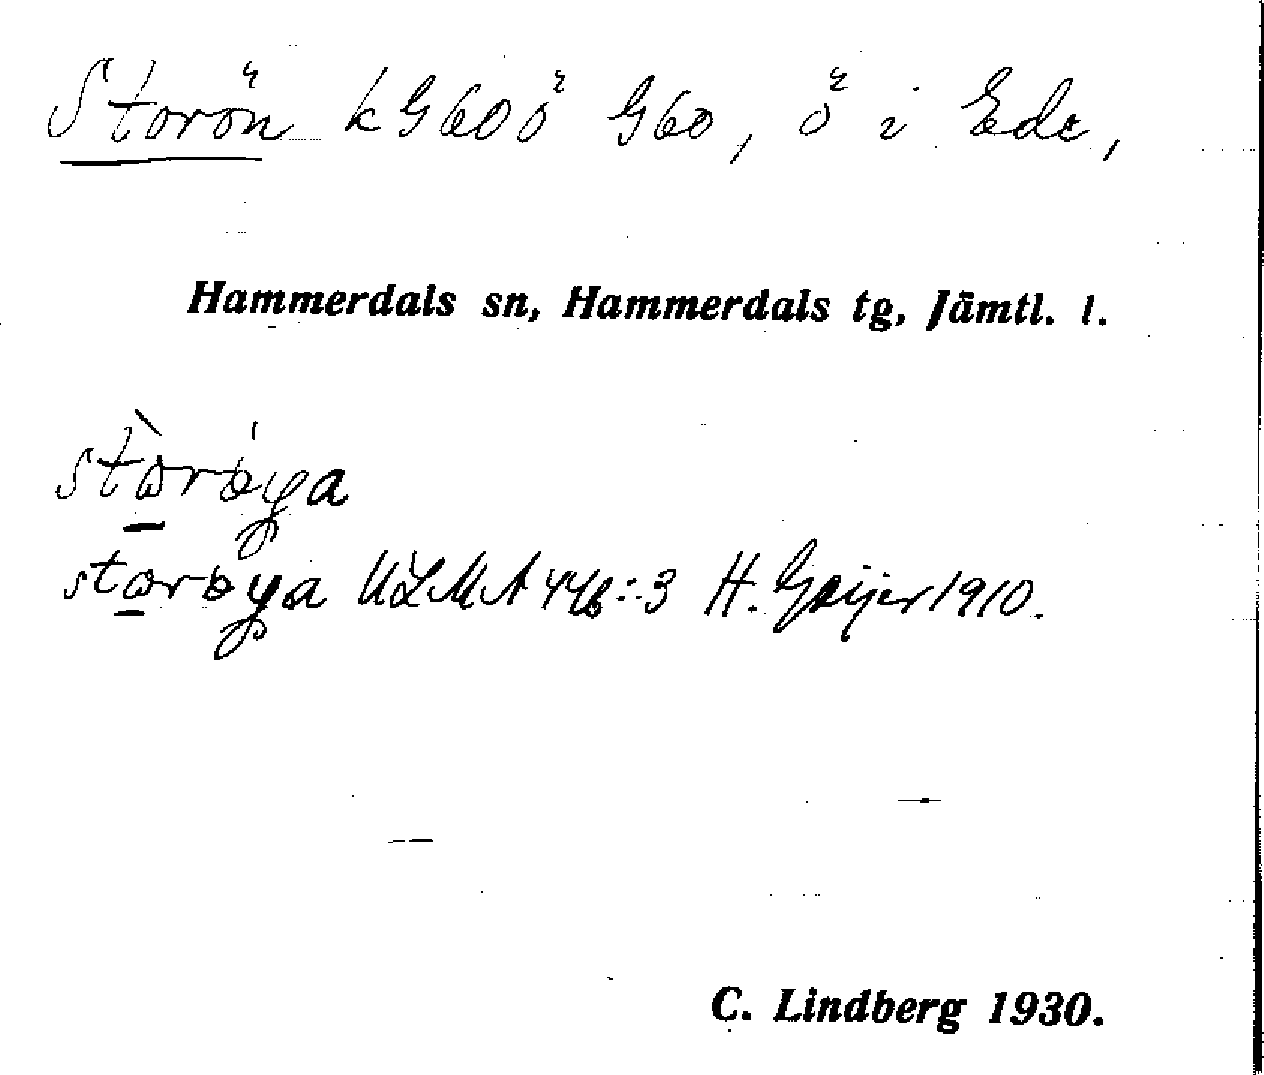 Storön k G60ö G60, ö i Ede,
Hammerdals sn, Hammerdals tg, Jämtl. l.
stòrǿya
storøya ULMA 446:3 H. Geijer 1910.
C. Lindberg 1930.